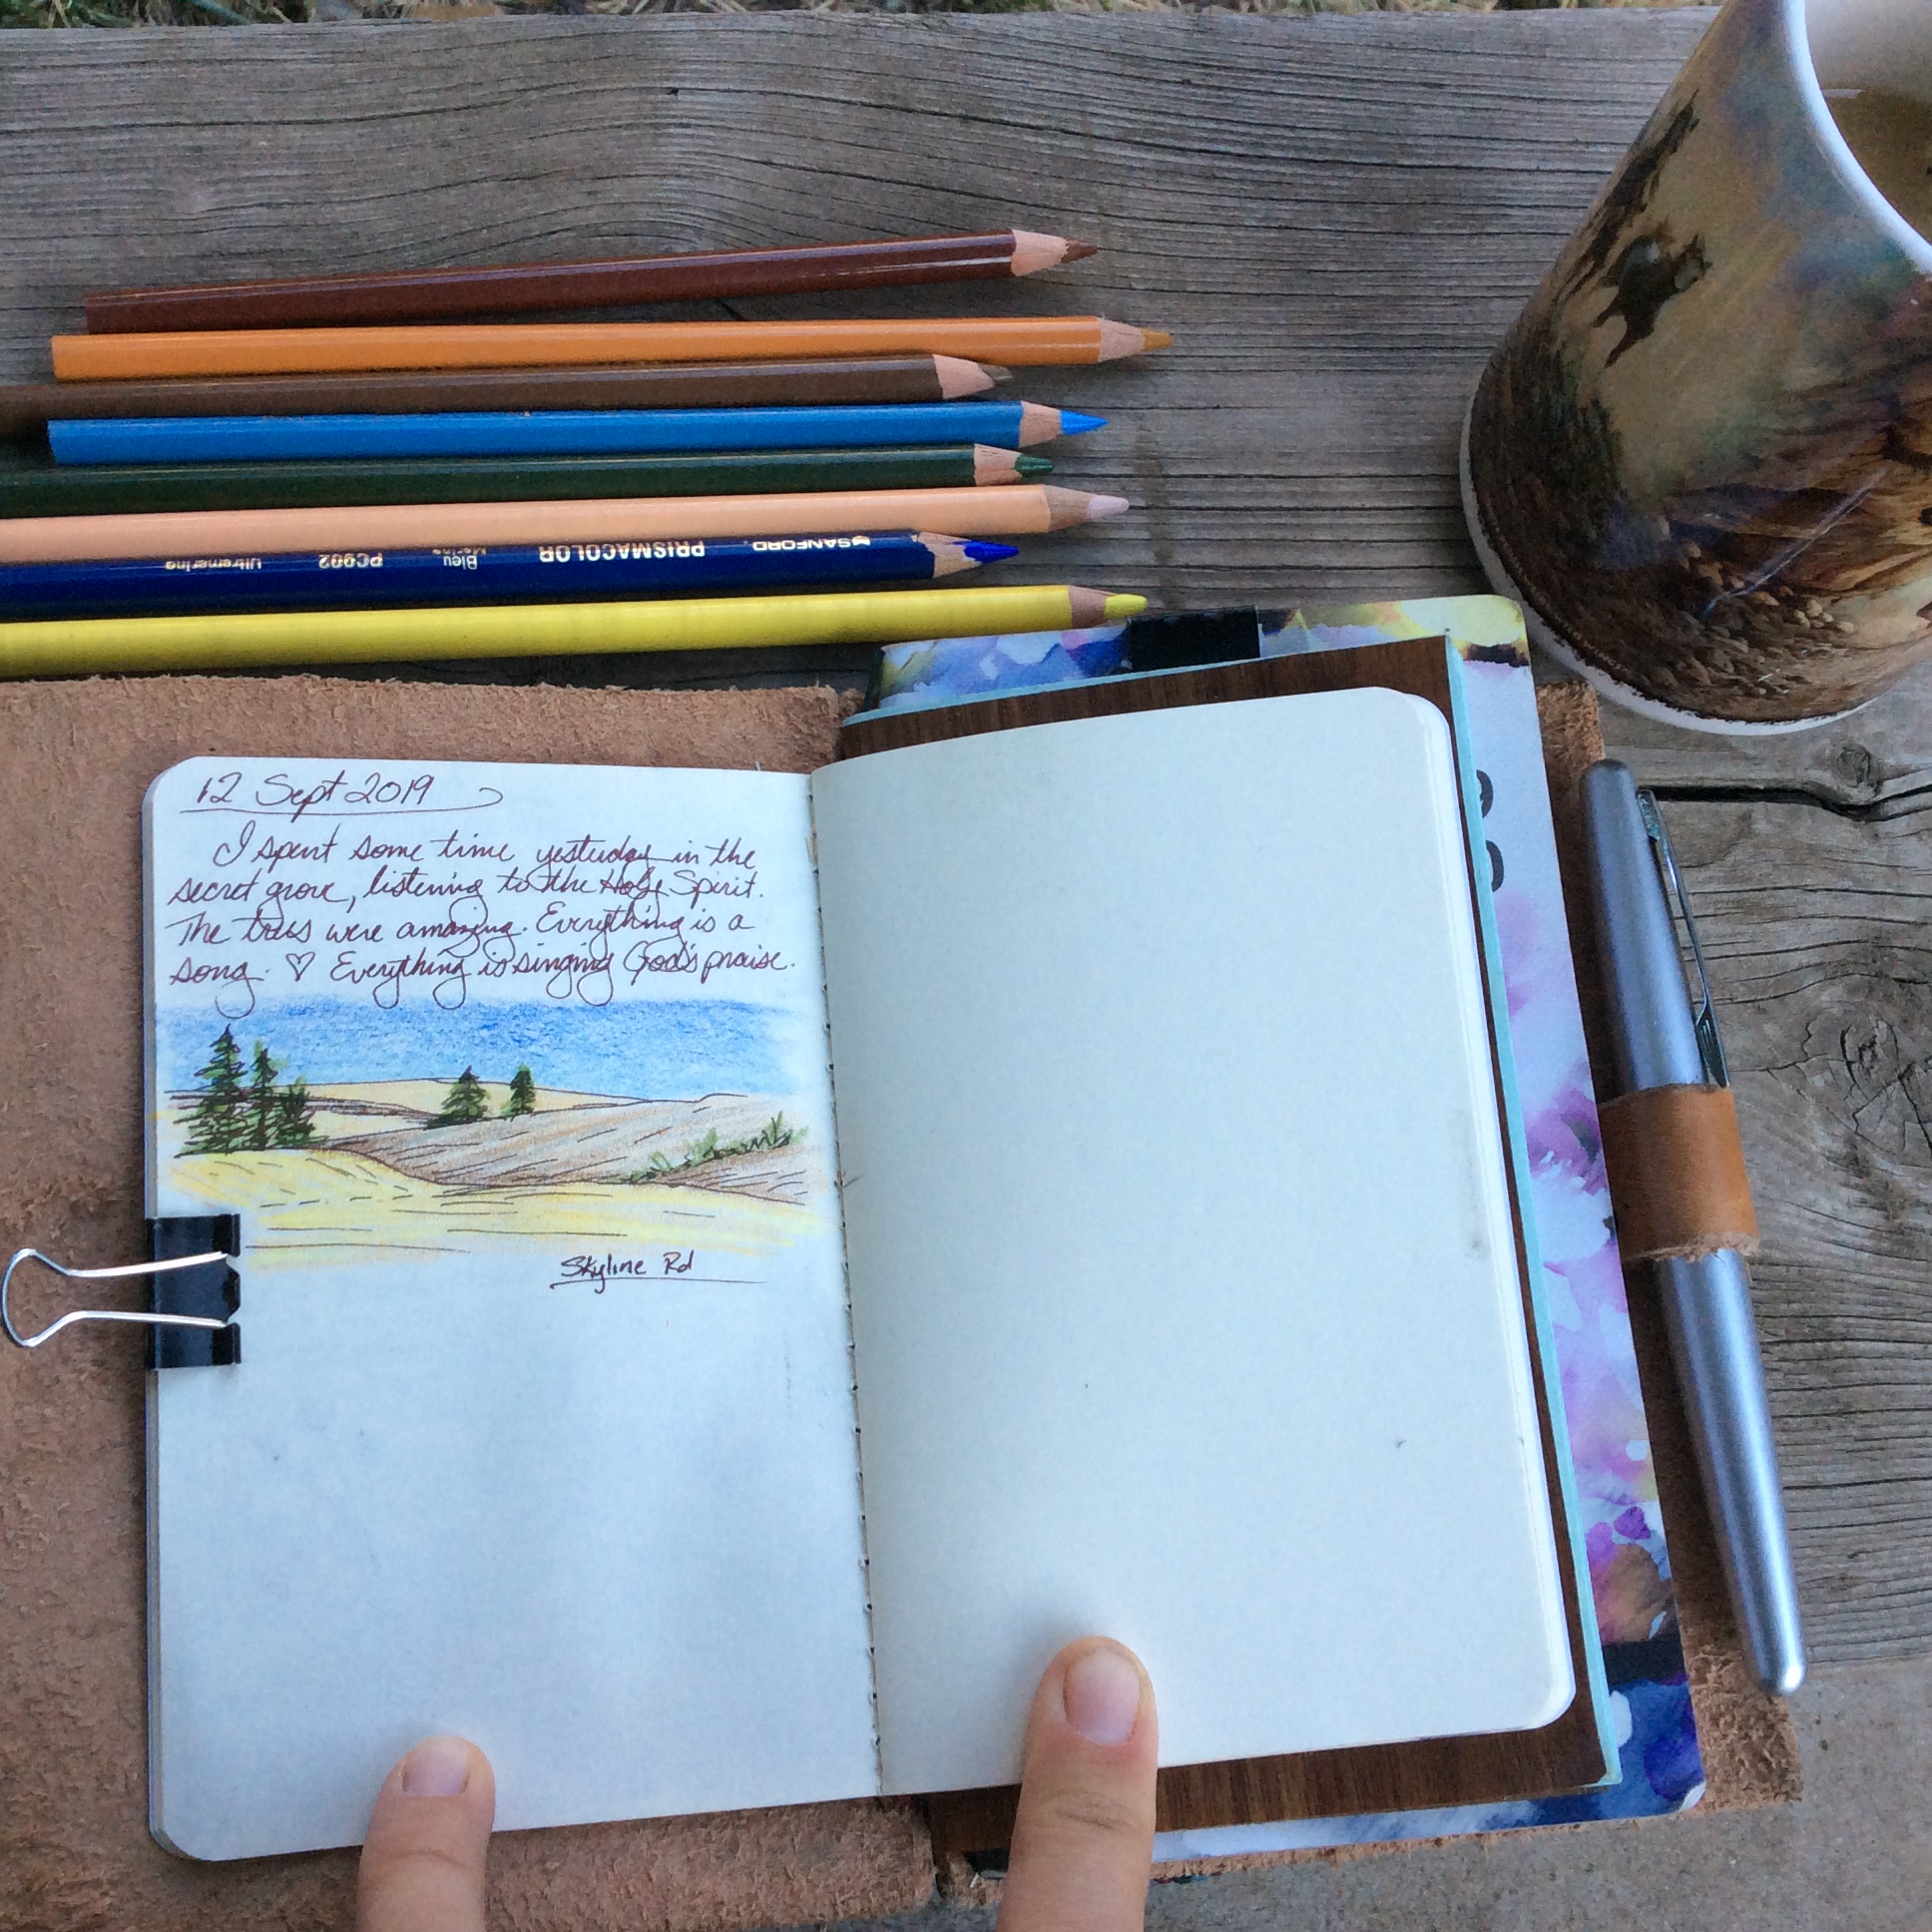 SANFORD. PRISMACOLOR Bleu Marine PC902 Ultramarine
12 Sept 2019
I spent some time yesterday in the
secret grove, listening to the Holy Spirit.
The trees were amazing. Everything is a
song. ♡ Everything is singing God's praise.
Skyline Rd